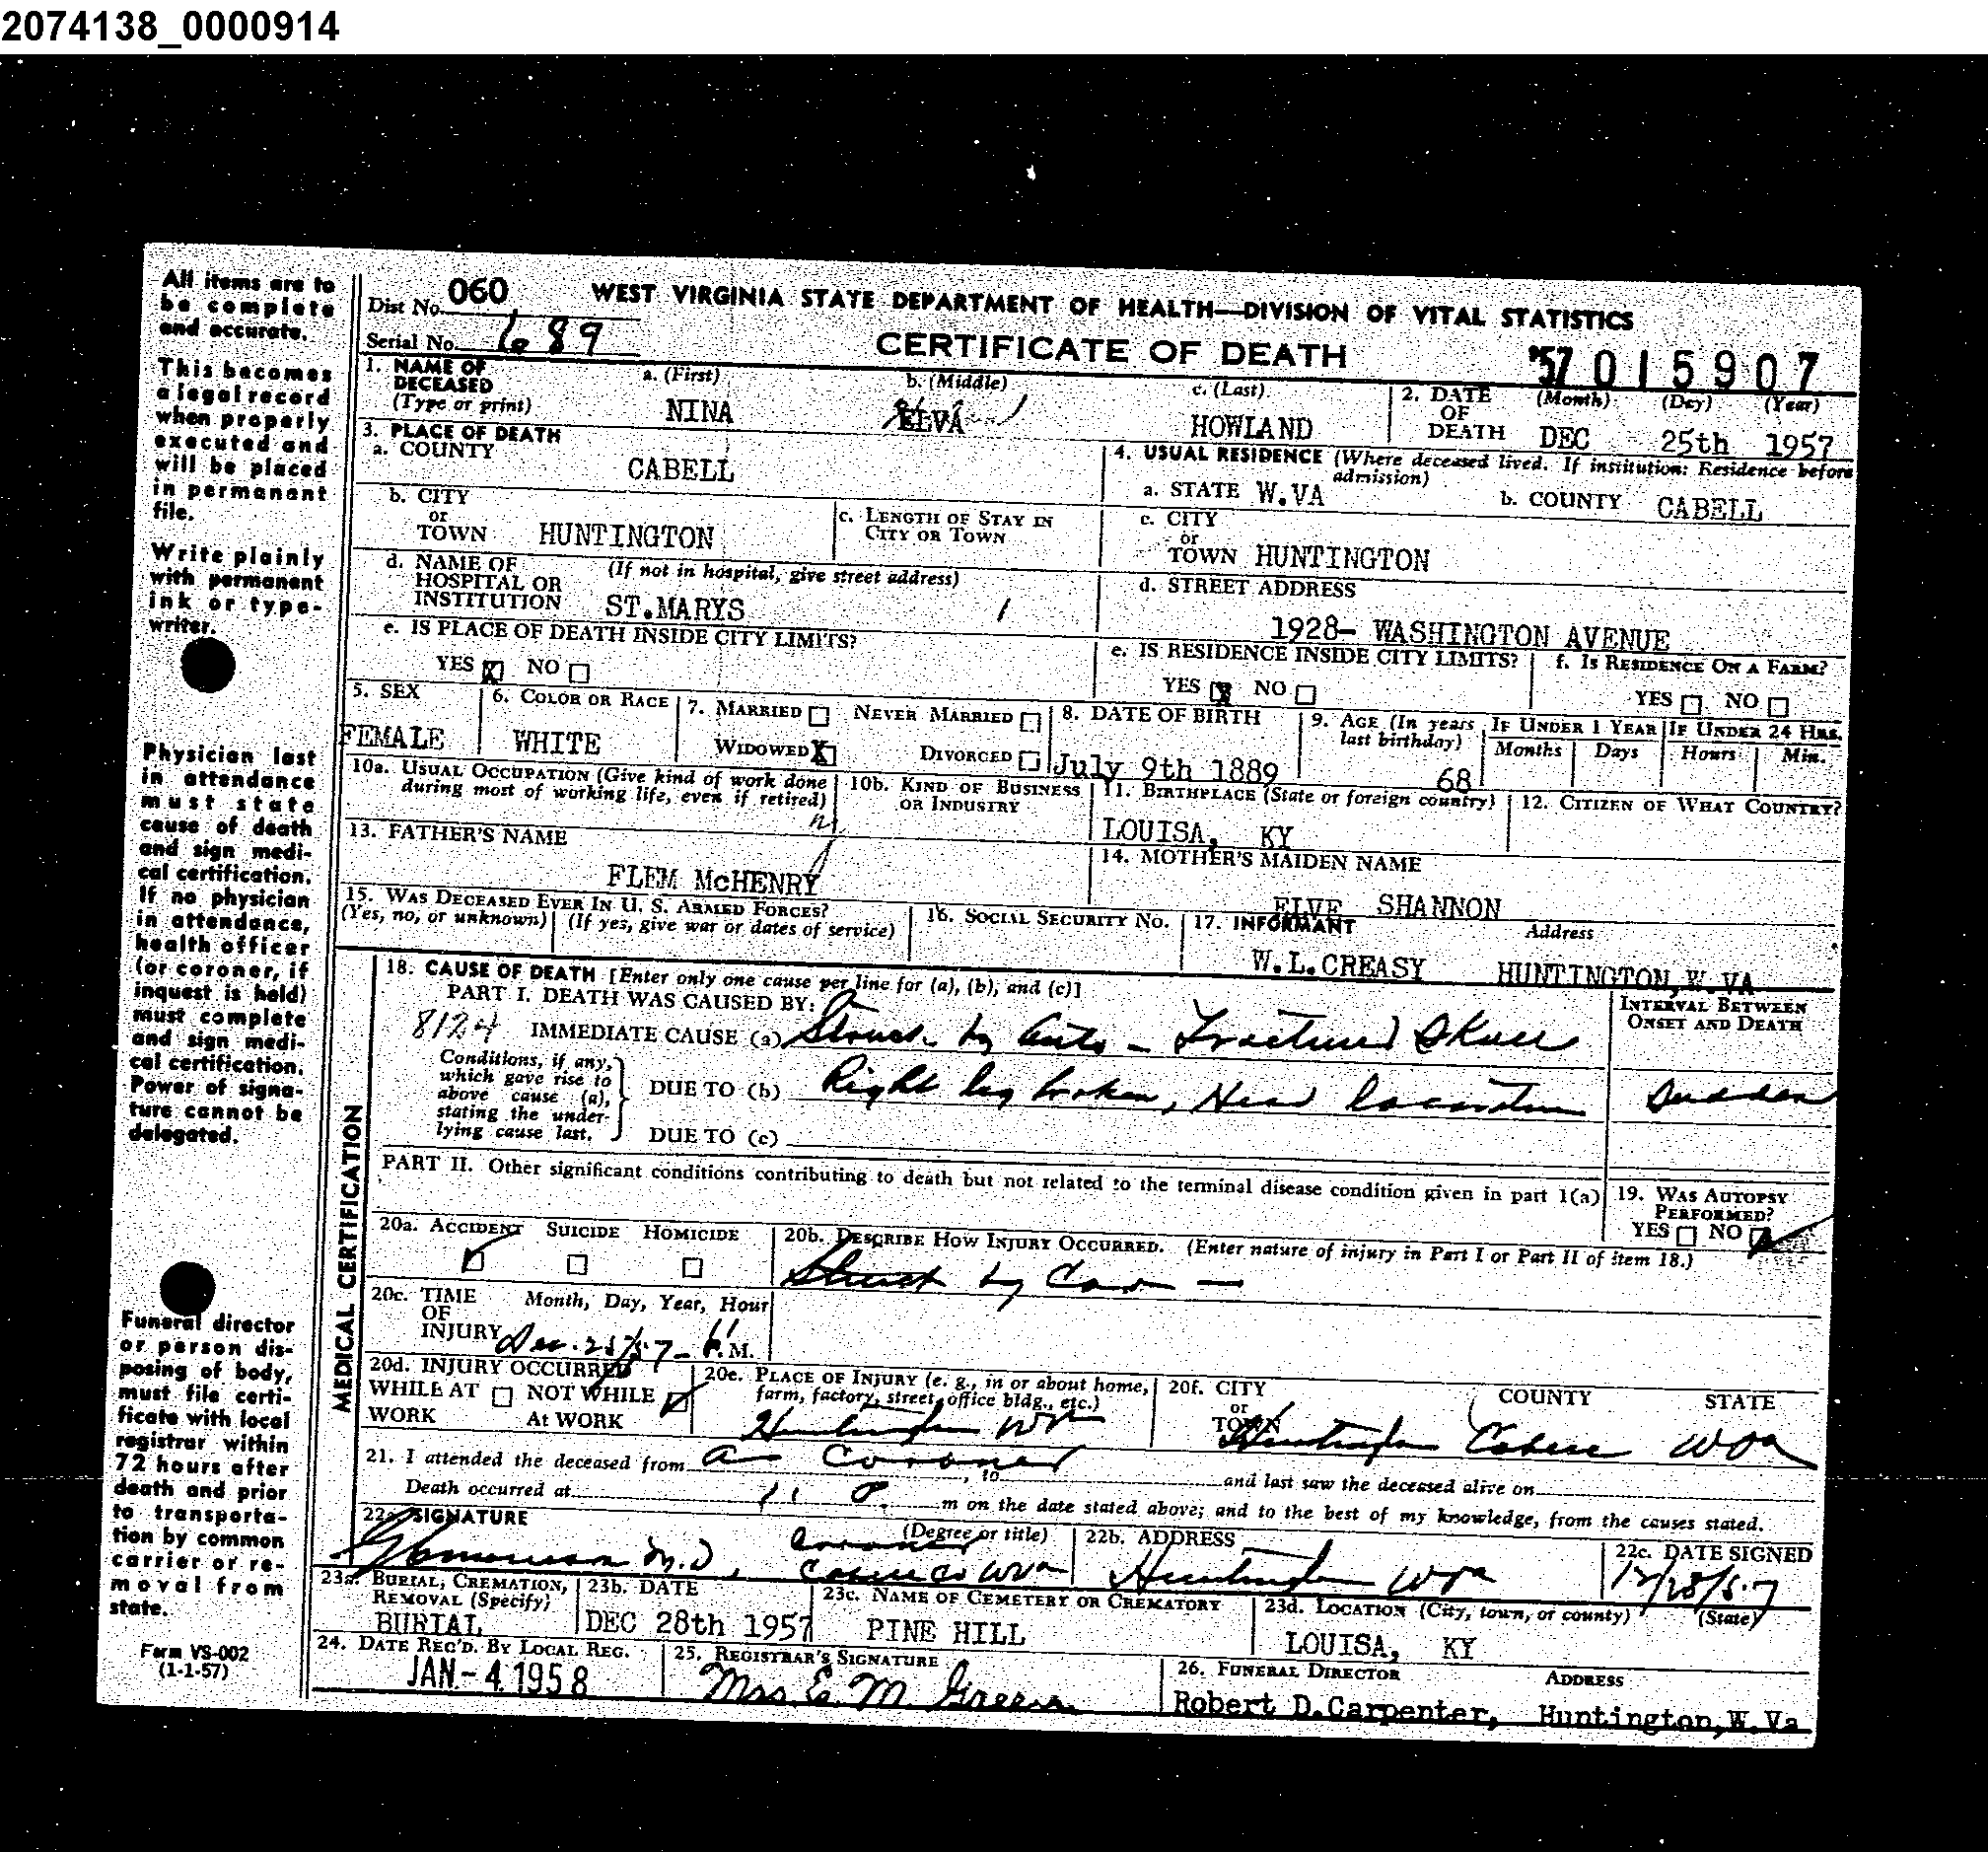 2074138_0000914
All items are to
be complete
and accurate.
This becomes
a legal record
when properly
executed and
will be placed
in permanent
file.
Write plainly
with permanent
ink or type-
writer.
Physician last
in attendance
must state
cause of death
and sign medi-
cal certification.
If no physician
in attendance,
health officer
(or coroner, if
inquest is held)
must complete
and sign medi-
cal certification.
Power of signa-
ture cannot be
delegated.
Funeral director
or person dis-
posing of body,
must file certi-
ficate with local
registrar within
72 hours after
death and prior
to transporta-
tion by common
carrier or re-
moval from
state.
Form VS-002
(1-1-57)
Dist No. 060 WEST VIRGINIA STATE DEPARTMENT OF HEALTH—DIVISION OF VITAL STATISTICS
Serial No. 689 CERTIFICATE OF DEATH '57 015907
1. NAME OF DECEASED (Type or print) a. (First) b. (Middle) c. (Last) 2. DATE OF DEATH (Month) (Day) (Year)
NINA ELVA HOWLAND DEC 25th 1957
3. PLACE OF DEATH
a. COUNTY CABELL
4. USUAL RESIDENCE (Where deceased lived. If institution: Residence before admission)
a. STATE W.VA b. COUNTY CABELL
b. CITY or TOWN HUNTINGTON c. LENGTH OF STAY IN CITY OR TOWN
c. CITY or TOWN HUNTINGTON
d. NAME OF HOSPITAL OR INSTITUTION (If not in hospital, give street address) ST.MARYS
d. STREET ADDRESS
1928- WASHINGTON AVENUE
e. IS PLACE OF DEATH INSIDE CITY LIMITS?
YES X NO
e. IS RESIDENCE INSIDE CITY LIMITS? f. IS RESIDENCE ON A FARM?
YES X NO YES NO
5. SEX 6. COLOR OR RACE 7. MARRIED NEVER MARRIED 8. DATE OF BIRTH 9. AGE (In years last birthday) IF UNDER 1 YEAR IF UNDER 24 HRS.
FEMALE WHITE WIDOWED X DIVORCED July 9th 1889 68 Months Days Hours Min.
10a. USUAL OCCUPATION (Give kind of work done during most of working life, even if retired) 10b. KIND OF BUSINESS OR INDUSTRY 11. BIRTHPLACE (State or foreign country) 12. CITIZEN OF WHAT COUNTRY?
LOUISA, KY
13. FATHER'S NAME 14. MOTHER'S MAIDEN NAME
FLEM McHENRY ELVE SHANNON
15. WAS DECEASED EVER IN U. S. ARMED FORCES?
(Yes, no, or unknown) (If yes, give war or dates of service) 16. SOCIAL SECURITY NO. 17. INFORMANT Address
W.L.CREASY HUNTINGTON,W.VA
MEDICAL CERTIFICATION
18. CAUSE OF DEATH [Enter only one cause per line for (a), (b), and (c)]
PART I. DEATH WAS CAUSED BY: INTERVAL BETWEEN ONSET AND DEATH
8124 IMMEDIATE CAUSE (a) Struck by Auto - Fractured Skull
Conditions, if any, which gave rise to above cause (a), stating the under-lying cause last.
DUE TO (b) Right leg broken, Head laceration Sudden
DUE TO (c)
PART II. Other significant conditions contributing to death but not related to the terminal disease condition given in part 1(a) 19. WAS AUTOPSY PERFORMED?
YES NO
20a. ACCIDENT SUICIDE HOMICIDE 20b. DESCRIBE HOW INJURY OCCURRED. (Enter nature of injury in Part I or Part II of item 18.)
Struck by Car -
20c. TIME OF INJURY Month, Day, Year, Hour
Dec. 25/57- P.M.
20d. INJURY OCCURRED
WHILE AT WORK NOT WHILE At WORK
20e. PLACE OF INJURY (e. g., in or about home, farm, factory, street, office bldg., etc.)
Huntington WVa
20f. CITY or TOWN COUNTY STATE
Huntington Cabell WVa
21. I attended the deceased from as Coroner, to and last saw the deceased alive on
Death occurred at 11 P. m on the date stated above; and to the best of my knowledge, from the causes stated.
22a. SIGNATURE (Degree or title) 22b. ADDRESS 22c. DATE SIGNED
M.D, Coroner Cabell Co WVa Huntington WVa 12/28/57
23a. BURIAL, CREMATION, REMOVAL (Specify) 23b. DATE 23c. NAME OF CEMETERY OR CREMATORY 23d. LOCATION (City, town, or county) (State)
BURIAL DEC 28th 1957 PINE HILL LOUISA, KY
24. DATE REC'D. BY LOCAL REG. 25. REGISTRAR'S SIGNATURE 26. FUNERAL DIRECTOR ADDRESS
JAN-4 1958 Mrs. E. M. Greene Robert D.Carpenter, Huntington,W.Va